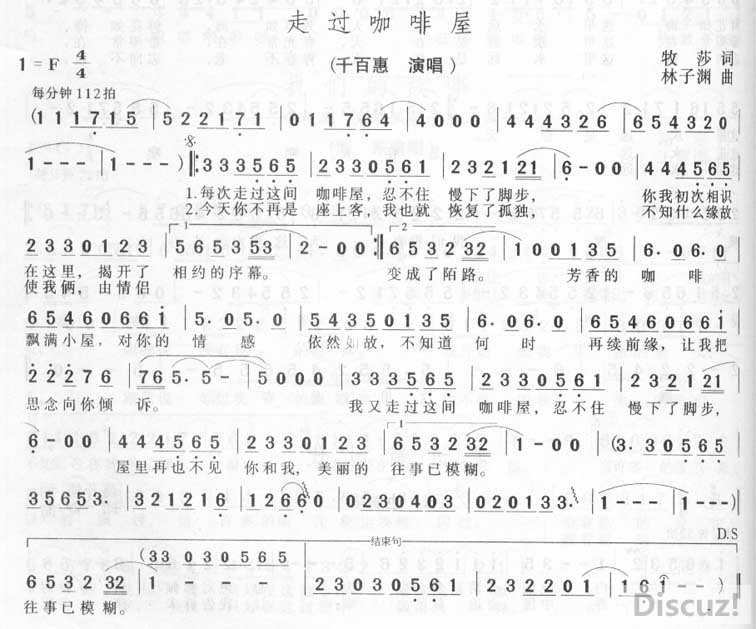 走过咖啡屋
1=F 4/4
(千百惠 演唱)
牧莎 词
林子渊 曲
每分钟112拍
(1 1 1 7 1 5 | 5 2 2 1 7 1 | 0 1 1 7 6 4 | 4 0 0 0 | 4 4 4 3 2 6 | 6 5 4 3 2 0 |
1 - - - | 1 - - - ) ‖: 3 3 3 5 6 5 | 2 3 3 0 5 6 1 | 2 3 2 1 21 | 6 - 0 0 | 4 4 4 5 6 5 |
1.每次走过这间 咖啡屋,忍不住 慢下了脚步, 你我初次相识
2.今天你不再是 座上客,我也就 恢复了孤独, 不知什么缘故
2 3 3 0 1 2 3 | 5 6 5 3 53 | 2 - 0 0 :‖ 6 5 3 2 32 | 1 0 0 1 3 5 | 6. 0 6. 0 |
在这里,揭开了 相约的序幕。 变成了陌路。 芳香的 咖 啡
使我俩,由情侣
6 5 4 6 0 6 6 1 | 5. 0 5. 0 | 5 4 3 5 0 1 3 5 | 6. 0 6. 0 | 6 5 4 6 0 6 6 1 |
飘满小屋,对你的 情 感 依然如故,不知道 何 时 再续前缘,让我把
2 2 2 2 7 6 | 76 5. 5 - | 5 0 0 0 | 3 3 3 5 6 5 | 2 3 3 0 5 6 1 | 2 3 2 1 21 |
思念向你倾 诉。 我又走过这间 咖啡屋,忍不住 慢下了脚步,
6 - 0 0 | 4 4 4 5 6 5 | 2 3 3 0 1 2 3 | 6 5 3 2 32 | 1 - 0 0 | (3. 3 0 5 6 5 |
屋里再也不见 你和我,美丽的 往事已模糊。
3 5 6 5 3. | 3 2 1 2 1 6 | 1 2 6 6 0 | 0 2 3 0 4 0 3 | 0 2 0 1 3 3. | 1 - - - | 1 - - - ) |
D.S
结束句
(3 3 0 3 0 5 6 5
6 5 3 2 32 | 1 - - - | 2 3 0 3 0 5 6 1 | 2 3 2 2 0 1 | 1 6 1 - - ) ‖
往事已模糊。
Discuz!